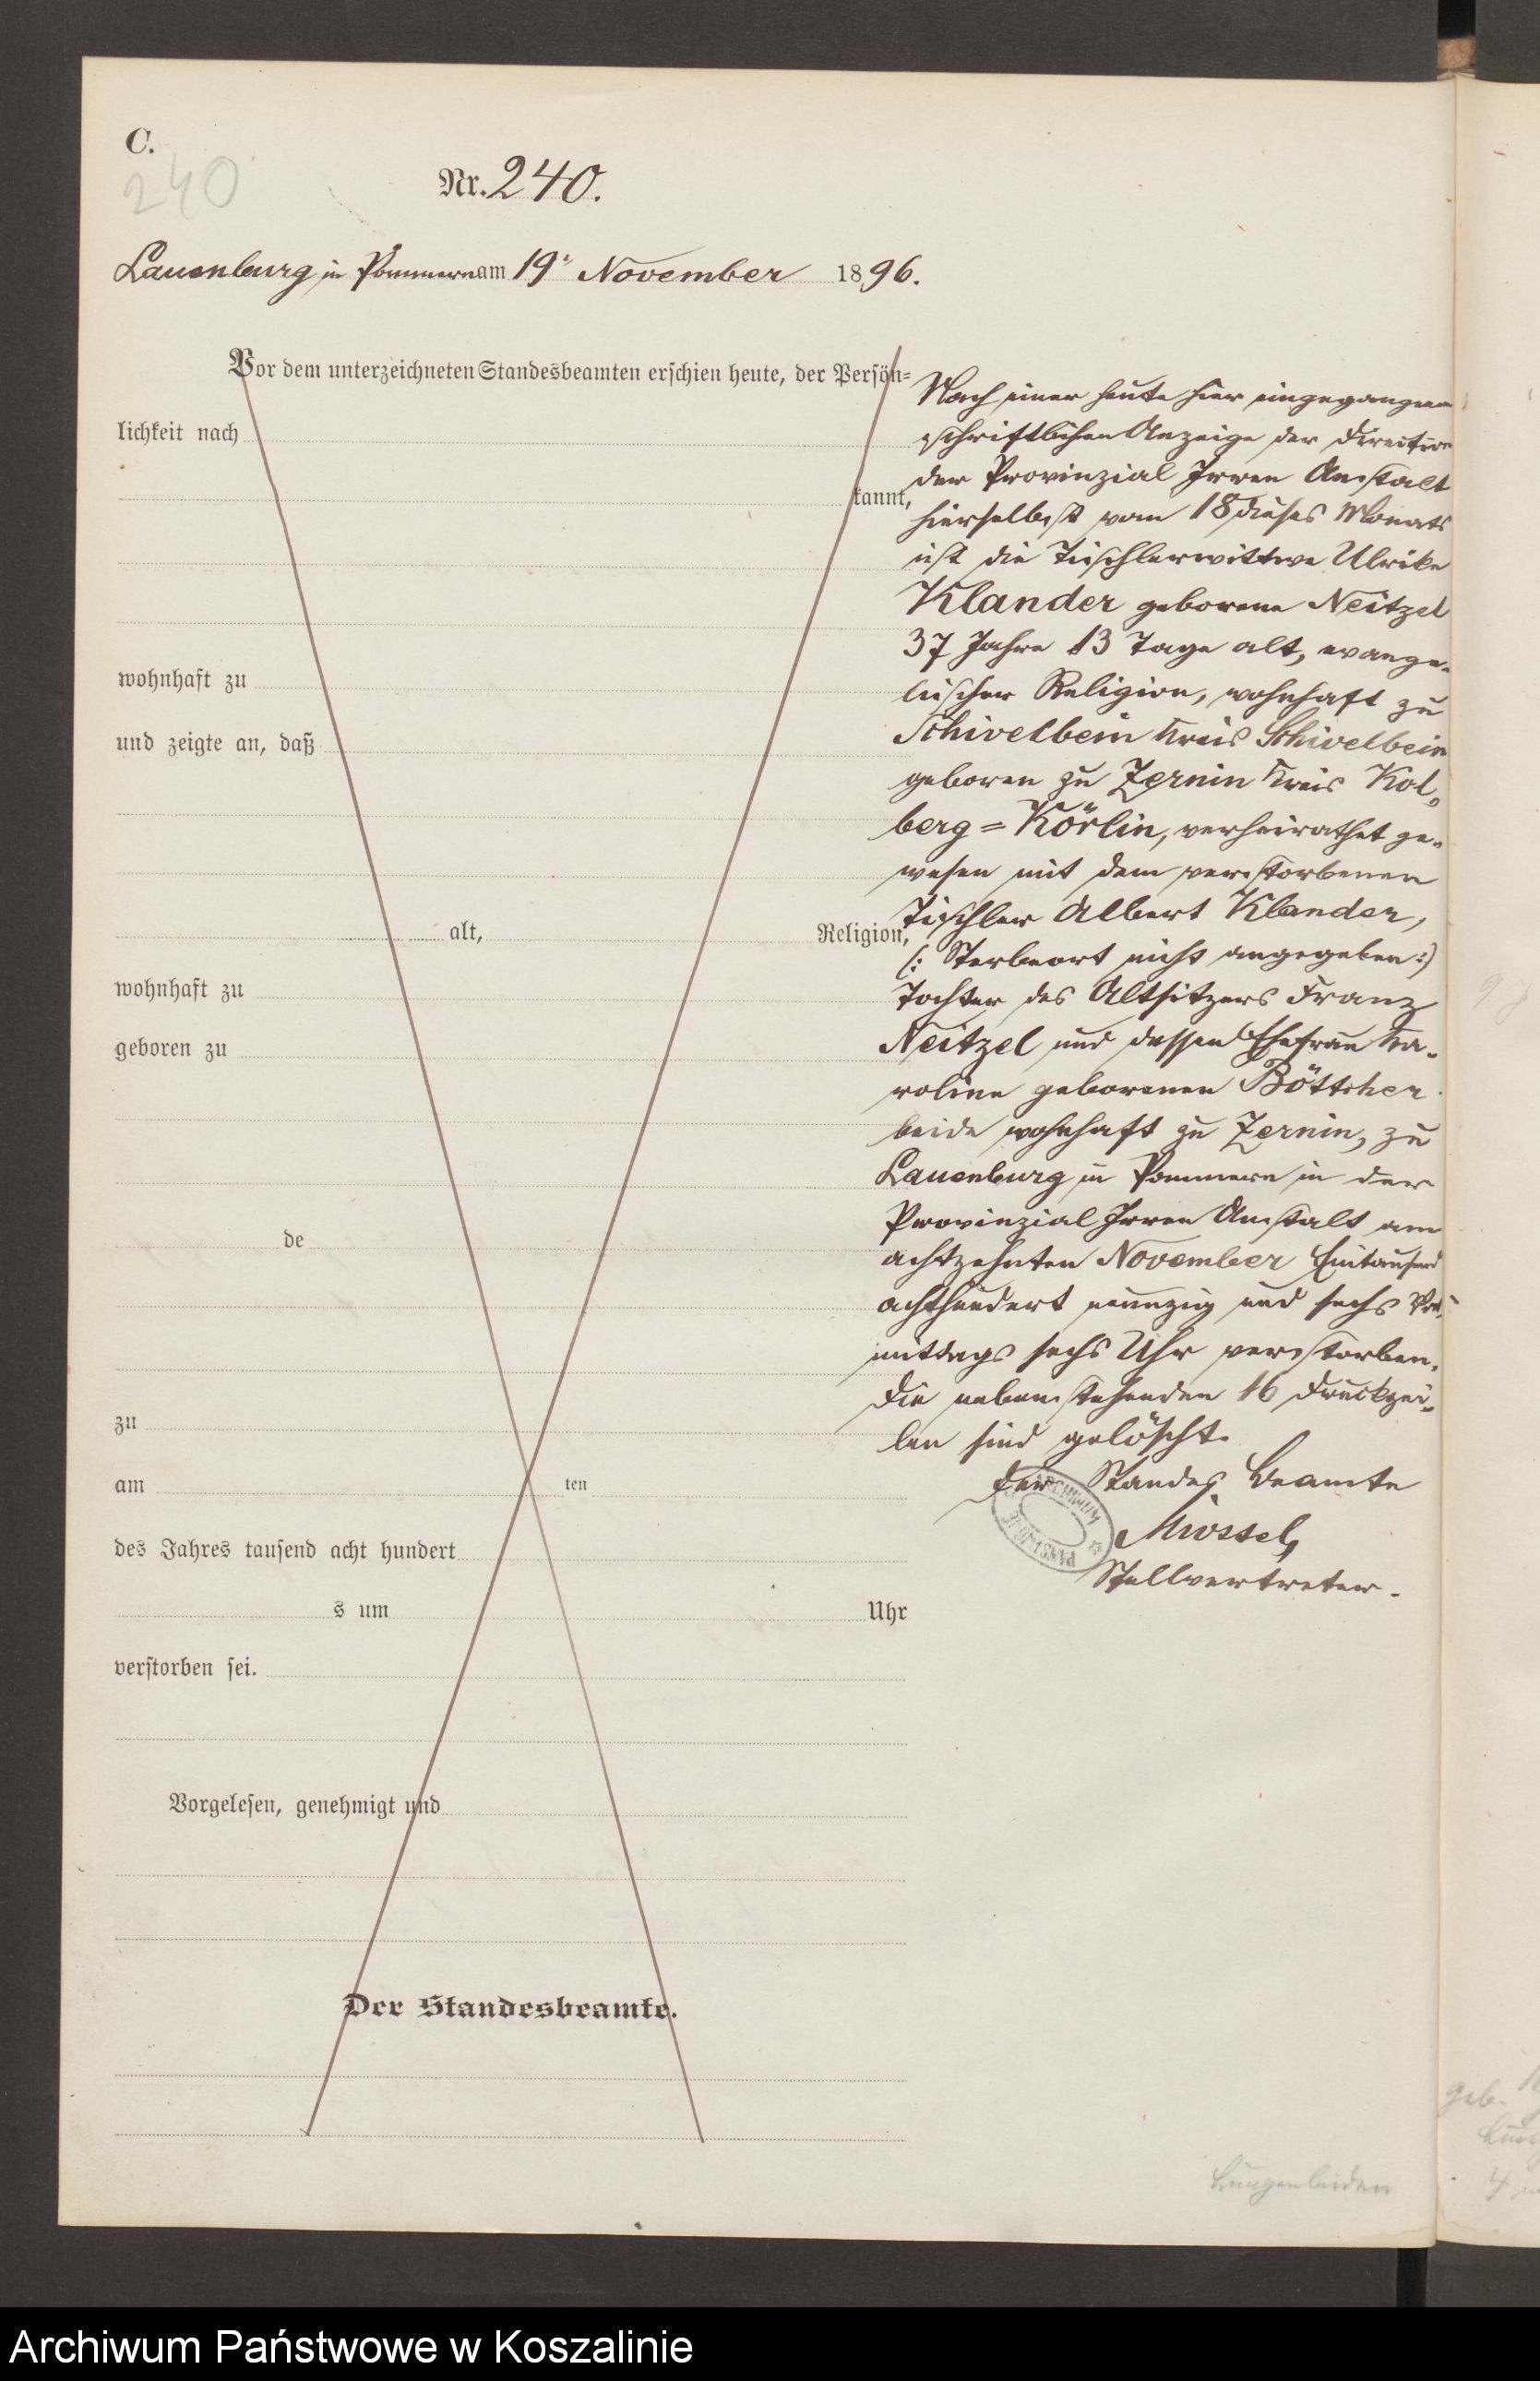 C.
240
Nr. 240.
Lauenburg in Pommern am 19ᵗ November 1896.
Vor dem unterzeichneten Standesbeamten erschien heute, der Persön=
lichkeit nach
kannt,
wohnhaft zu
und zeigte an, daß
alt, Religion,
wohnhaft zu
geboren zu
de
zu
am ten
des Jahres tausend acht hundert
s um Uhr
verstorben sei.
Vorgelesen, genehmigt und
Der Standesbeamte.
Nach einer heute hier eingegangenen
schriftlichen Anzeige der Direction
der Provinzial Irren Anstalt
hierselbst vom 18 dieses Monats
ist die Tischlerwittwe Ulrike
Klander geborene Neitzel
37 Jahre 13 Tage alt, evange-
lischer Religion, wohnhaft zu
Schivelbein Kreis Schivelbein
geboren zu Zernin Kreis Kol-
berg=Körlin, verheirathet ge-
wesen mit dem verstorbenen
Tischler Albert Klander,
(: Sterbeort nicht angegeben :)
Tochter des Altsitzers Franz
Neitzel und dessen Ehefrau Ka-
roline geborenen Böttcher
beide wohnhaft zu Zernin, zu
Lauenburg in Pommern in der
Provinzial Irren Anstalt am
achtzehnten November Eintausend
achthundert neunzig und sechs Vor-
mittags sechs Uhr verstorben.
Die nebenstehenden 16 Druckzei-
len sind gelöscht.
Der Standes Beamte
Stellvertreter.
ARCHIWUM
Lungenleiden
geb.
Archiwum Państwowe w Koszalinie